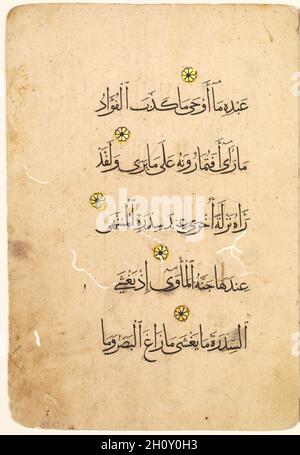 عَبْدِهِ مَآ أَوْحَى مَا كَذَبَ الْفُؤَادُ
مَا رَأَى أَفَتُمَارُونَهُ عَلَى مَا يَرَى وَلَقَدْ
رَآهُ نَزْلَةً أُخْرَى عِنْدَ سِدْرَةِ الْمُنْتَهَى
عِنْدَهَا جَنَّةُ الْمَأْوَى إِذْ يَغْشَى
السِّدْرَةَ مَا يَغْشَى مَا زَاغَ الْبَصَرُ وَمَا
alamy - 2H0Y0H3